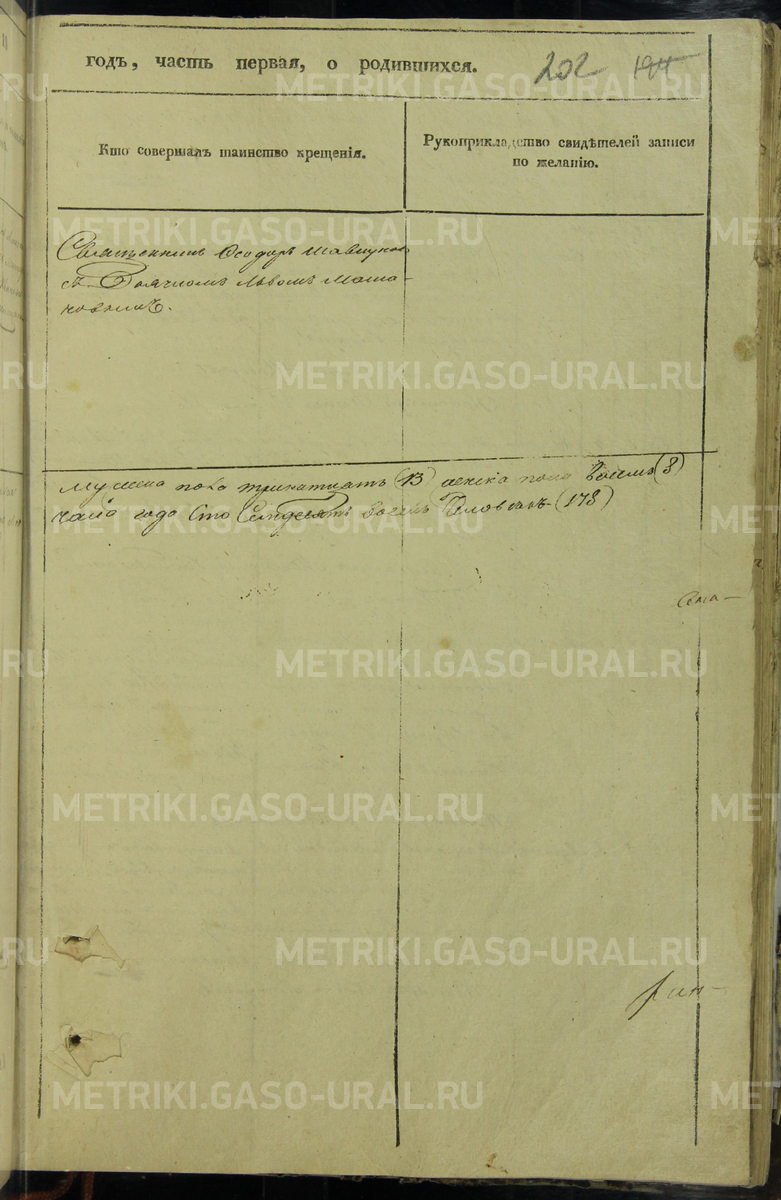 годъ, часть первая, о родившихся.
202 194
Кто совершалъ таинство крещенія.
Рукоприкладство свидѣтелей записи
по желанію.
Священникъ Ѳеодоръ
съ Дьячкомъ Львомъ
мужеска пола тринатцать (13) женска пола восемь (8)
года Сто Семдесятъ восемь Человѣкъ (178)
METRIKI.GASO-URAL.RU